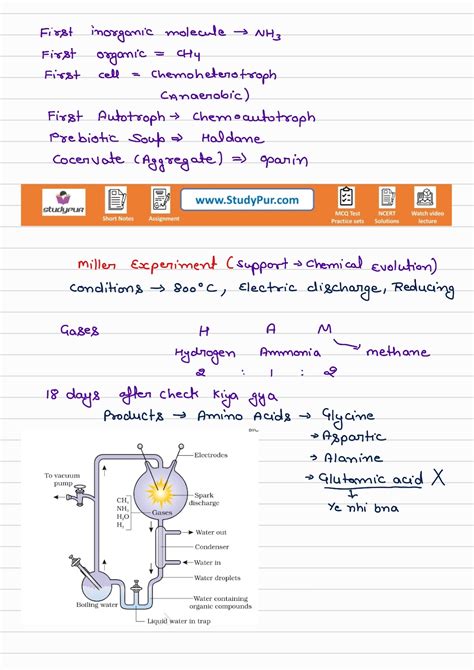 First inorganic molecule → NH3
First organic = CH4
First cell = Chemoheterotroph
(Anaerobic)
First Autotroph → Chemoautotroph
Prebiotic Soup ⇒ Haldane
Cocervate (Aggregate) ⇒ Oparin
studypur
Short Notes
Assignment
www.StudyPur.com
MCQ Test Practice sets
NCERT Solutions
Watch video lecture
Miller Experiment (Support → Chemical Evolution)
Conditions → 800°C, Electric discharge, Reducing
Gases H A M
Hydrogen Ammonia methane
2 : 1 : 2
18 days after check Kiya gya
Products → Amino Acids → Glycine
→ Aspartic
→ Alanine
→ Glutamic acid X
Ye nhi bna
Electrodes
To vacuum pump
Spark discharge
CH4
NH3
H2O
H2
Gases
Water out
Condenser
Water in
Water droplets
Boiling water
Water containing organic compounds
Liquid water in trap